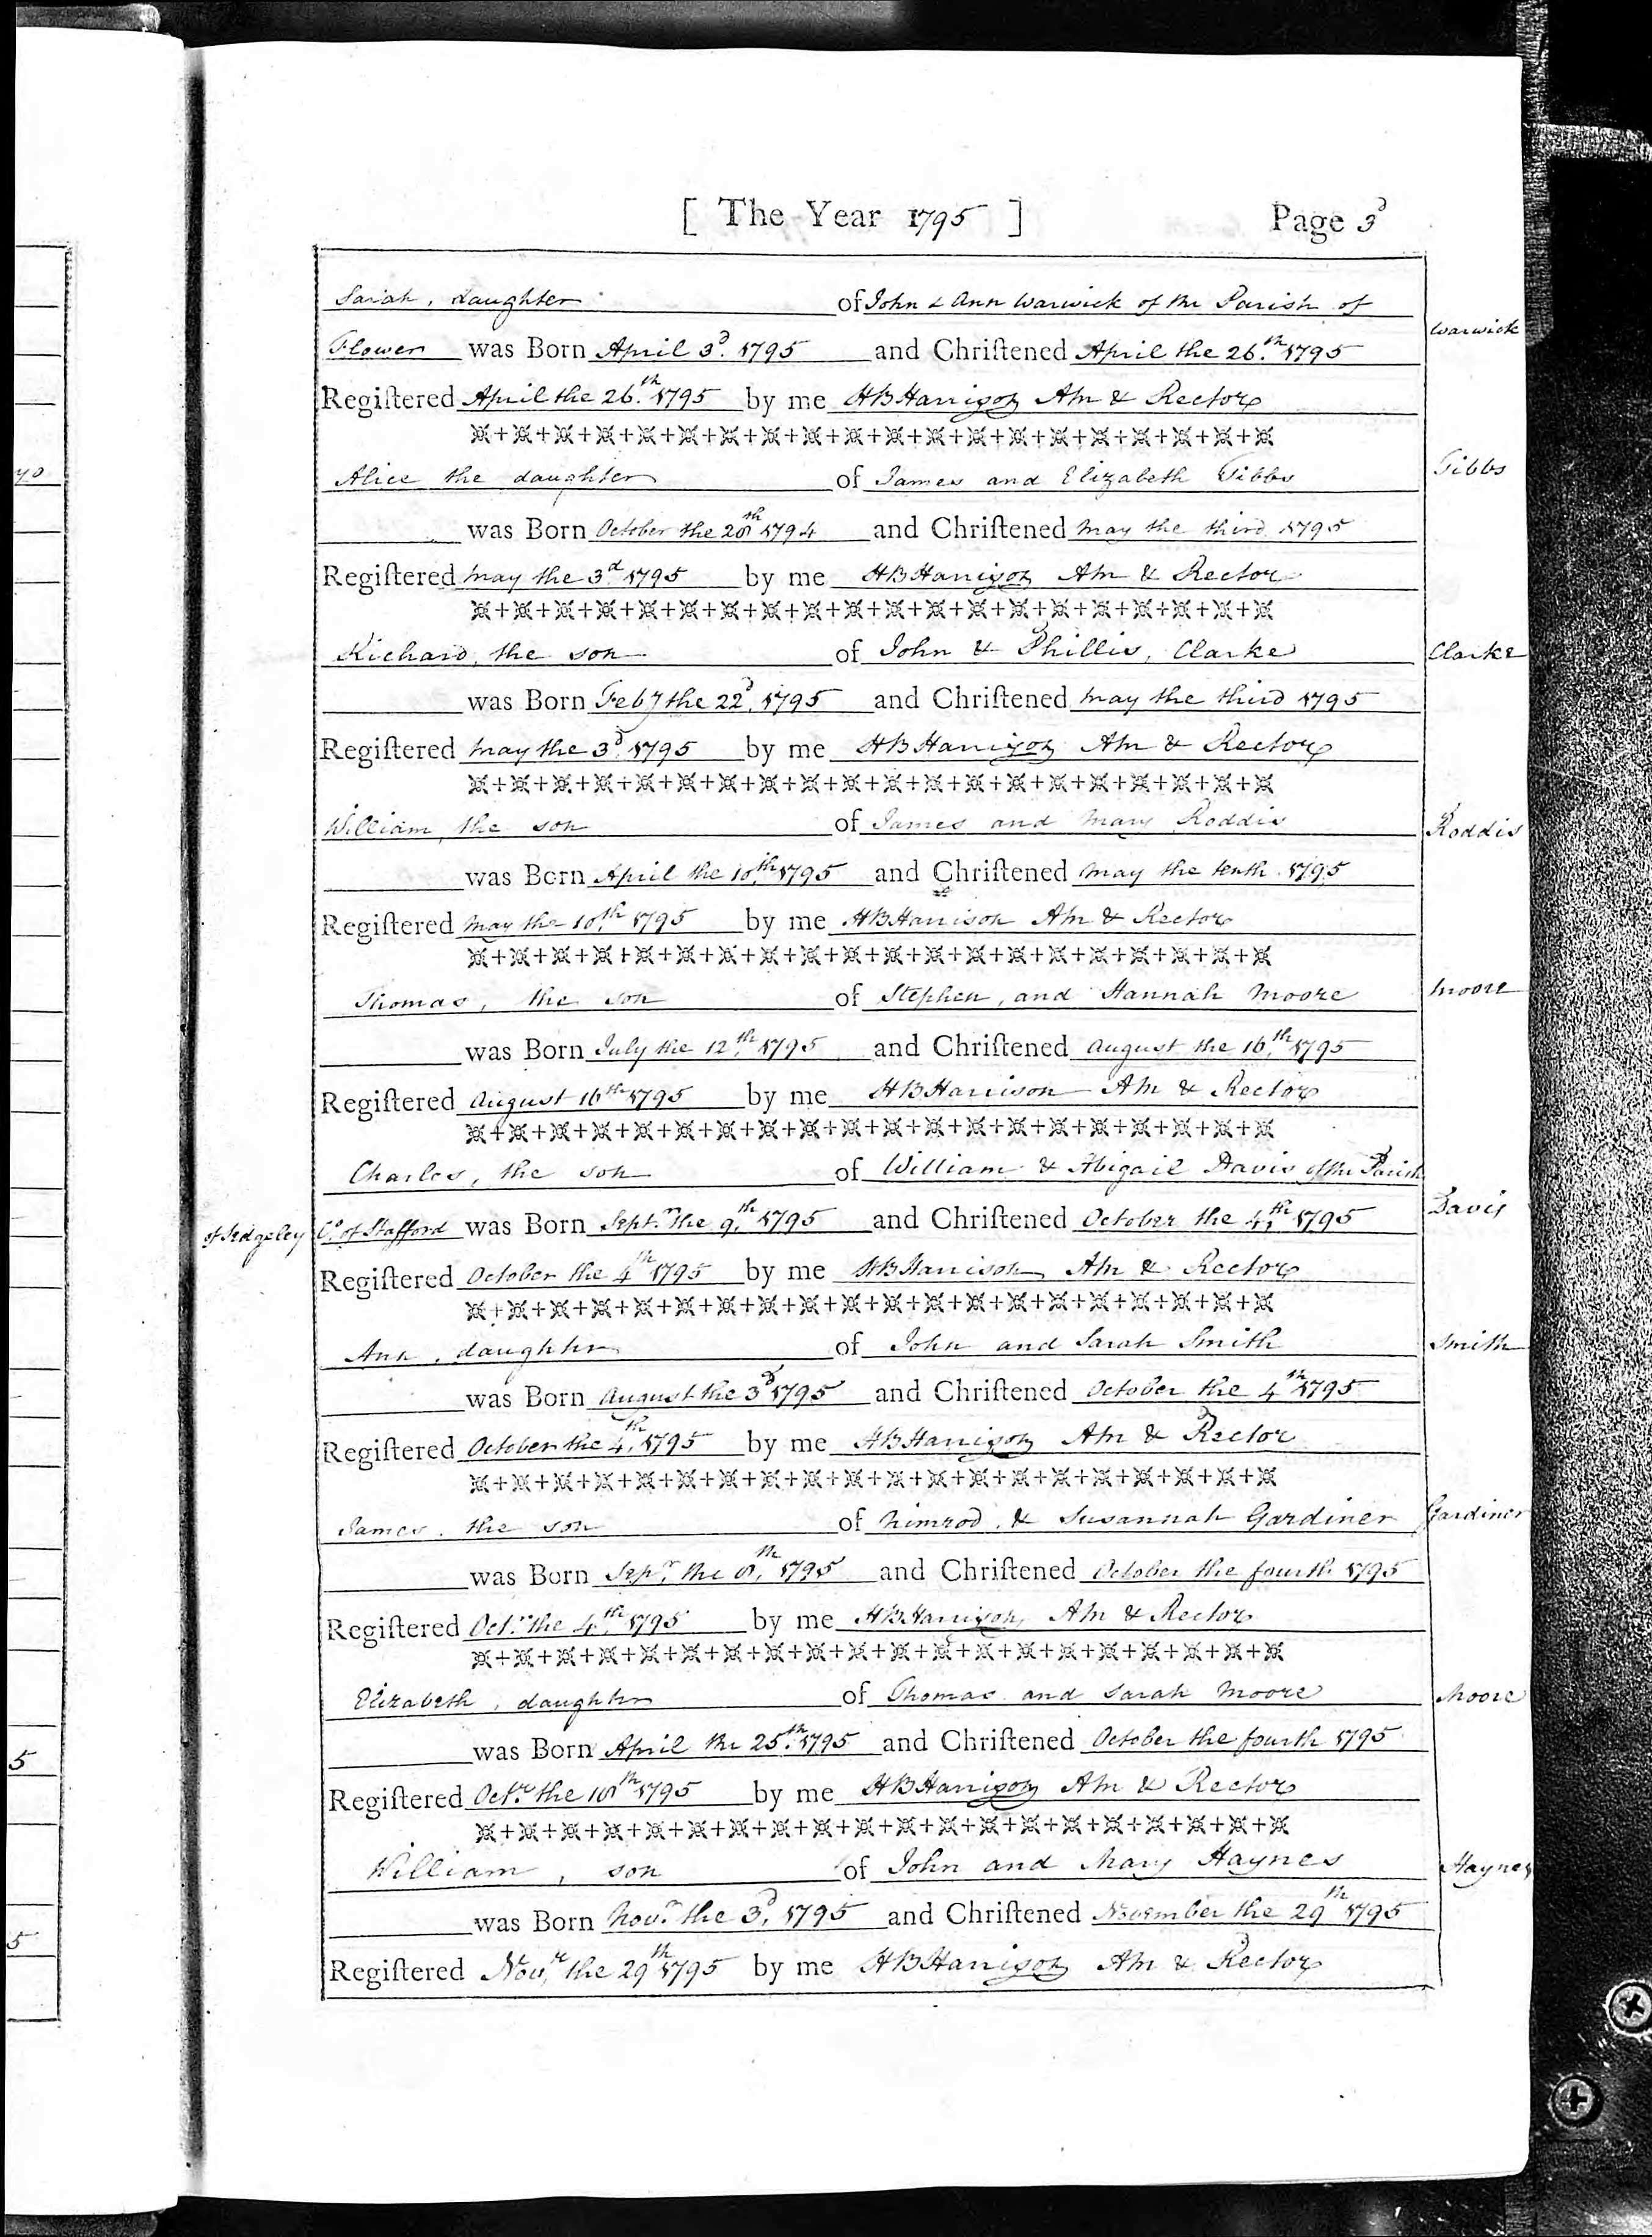 [ The Year 1795 ] Page 3d
Sarah, daughter of John & Ann Warwick of the Parish of
Warwick
Flower was Born April 3d. 1795 and Chriſtened April the 26.th 1795
Regiſtered April the 26.th 1795 by me HB Harrison AM & Rector
Alice the daughter of James and Elizabeth Tibbs
Tibbs
was Born October the 28th 1794 and Chriſtened May the third 1795
Regiſtered May the 3.d 1795 by me HB Harrison AM & Rector
Richard, the son of John & Phillis, Clarke
Clarke
was Born Feby the 22d, 1795 and Chriſtened May the third 1795
Regiſtered May the 3d, 1795 by me HB Harrison AM & Rector
William, the son of James and Mary Roddis
Roddis
was Born April the 10,th 1795 and Chriſtened May the tenth 1795
Regiſtered May the 10,th 1795 by me HB Harrison AM & Rector
Thomas, the son of Stephen, and Hannah Moore
Moore
was Born July the 12,th 1795 and Chriſtened August the 16,th 1795
Regiſtered August 16th 1795 by me HB Harrison AM & Rector
Charles, the son of William & Abigail Davis of the Parish
Davis
of Sedgeley Co. of Stafford was Born Sept.r the 9,th 1795 and Chriſtened October the 4,th 1795
Regiſtered October the 4th 1795 by me HB Harrison AM & Rector
Ann, daughter of John and Sarah Smith
Smith
was Born August the 3d 1795 and Chriſtened October the 4th 1795
Regiſtered October the 4,th 1795 by me HB Harrison AM & Rector
James, the son of Nimrod, & Susannah Gardiner
Gardiner
was Born Sep.r the 8,th 1795 and Chriſtened October the fourth 1795
Regiſtered Oct.r the 4,th 1795 by me HB Harrison AM & Rector
Elizabeth, daughter of Thomas and Sarah Moore
Moore
was Born April the 25.th 1795 and Chriſtened October the fourth 1795
Regiſtered Oct.r the 18th 1795 by me HB Harrison AM & Rector
William, son of John and Mary Haynes
Haynes
was Born Nov.r the 3d, 1795 and Chriſtened November the 29th 1795
Regiſtered Nov.r the 29th 1795 by me HB Harrison AM & Rector